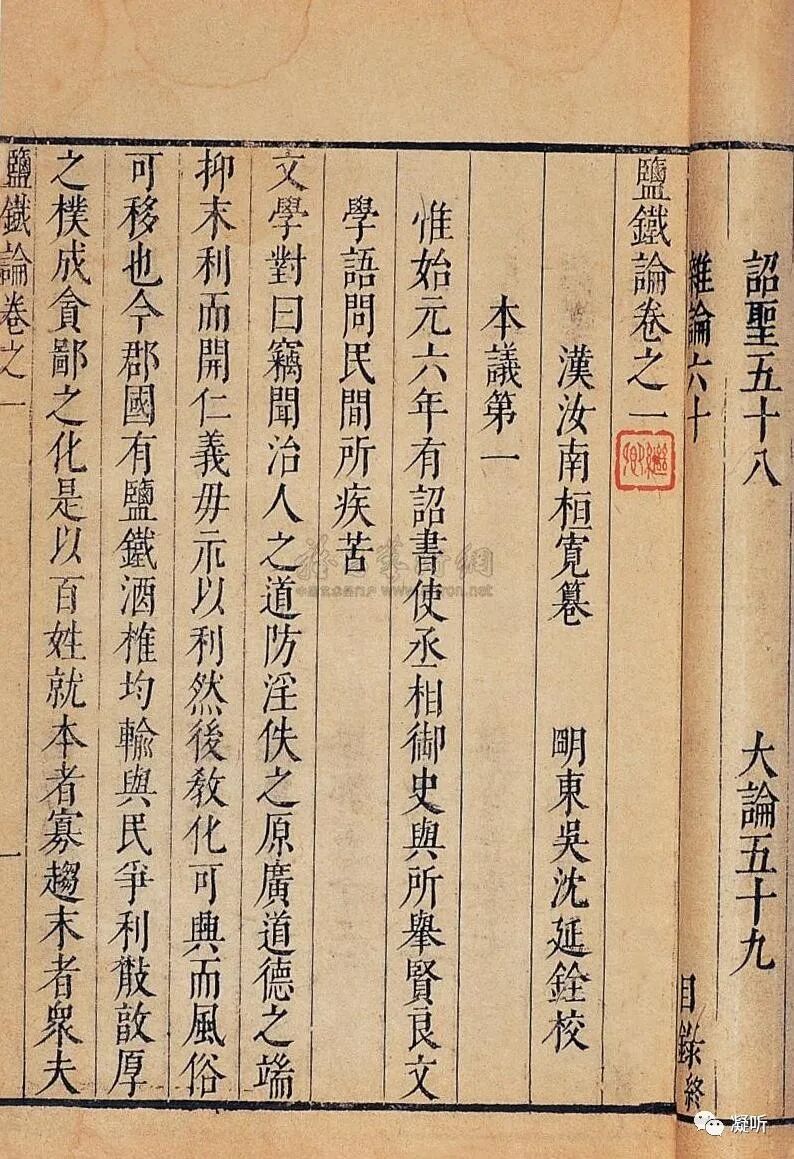 詔聖五十八　大論五十九
雜論六十　目錄終
鹽鐵論卷之一
漢汝南桓寬篹　明東吳沈延銓校
本議第一
惟始元六年有詔書使丞相御史與所舉賢良文
學語問民間所疾苦
文學對曰竊聞治人之道防淫佚之原廣道德之端
抑末利而開仁義毋示以利然後敎化可興而風俗
可移也今郡國有鹽鐵酒榷均輸與民爭利散敦厚
之樸成貪鄙之化是以百姓就本者寡趨末者衆夫
鹽鐵論卷之一　一
凝听